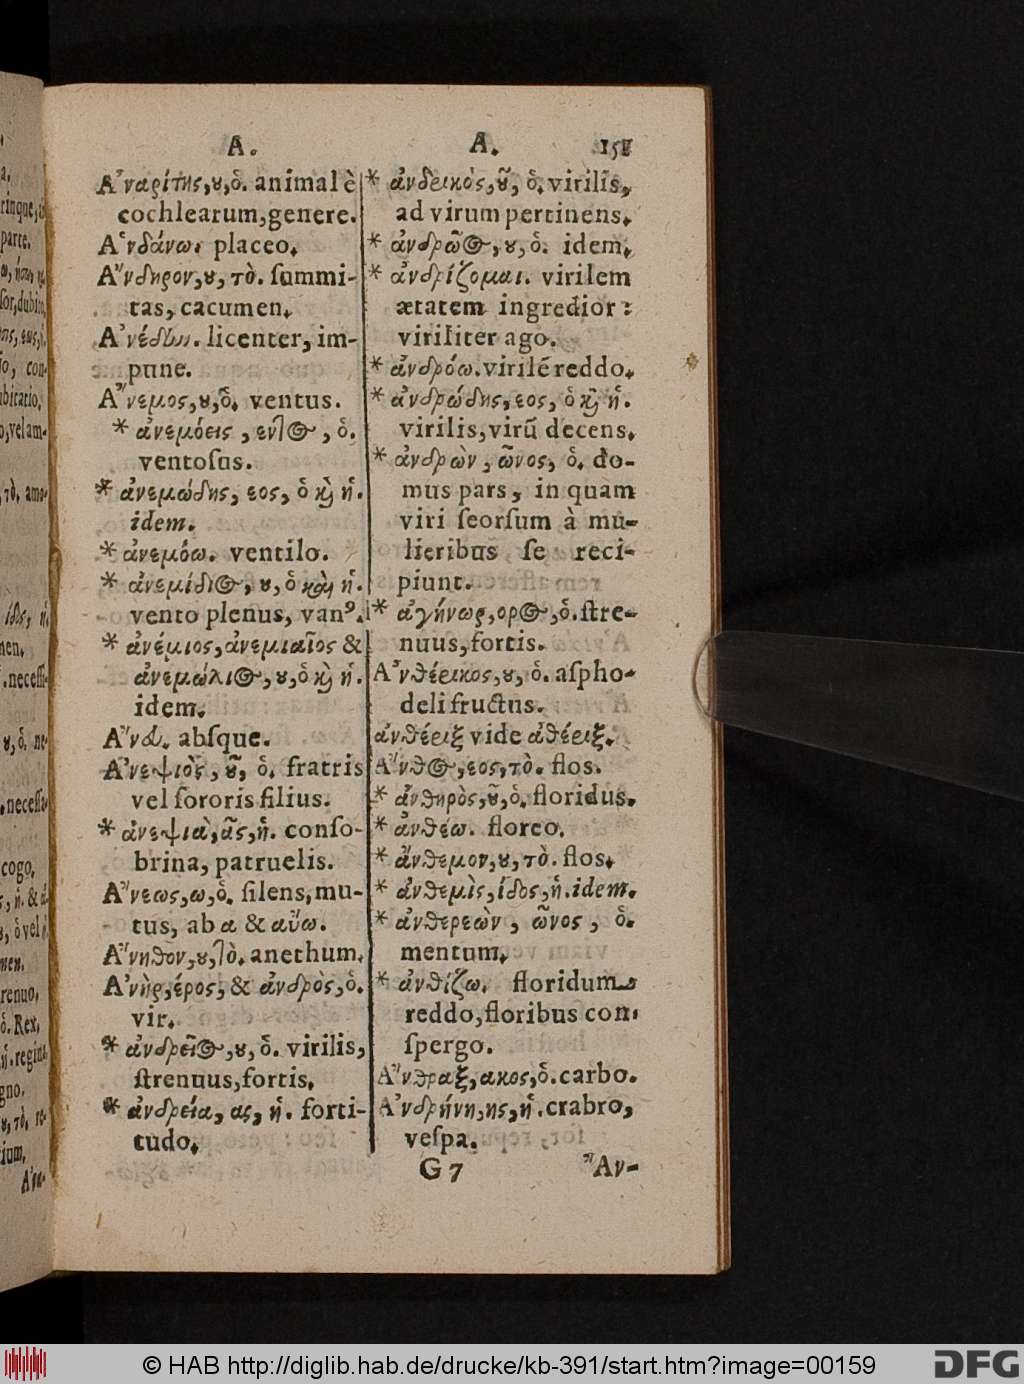 A. A. 151
Ἀναρίτης,ου,ὁ. animal è
cochlearum,genere.
Ἁνδάνω. placeo.
Ἄνδηρον,ου,τὸ. ſummi-
tas, cacumen.
Ἀνέδην. licenter, im-
pune.
Ἄνεμος,ου,ὁ. ventus.
* ἀνεμόεις, εντος, ὁ.
ventoſus.
* ἀνεμώδης, εος, ὁ καὶ ἡ.
idem.
* ἀνεμόω. ventilo.
* ἀνεμίδιος, ου, ὁ καὶ ἡ.
vento plenus, vanꝰ.
* ἀνέμιος, ἀνεμιαῖος &
ἀνεμώλιος, ου, ὁ καὶ ἡ.
idem.
Ἄνευ. abſque.
Ἀνεψιὸς, οῦ, ὁ. fratris
vel ſororis filius.
* ἀνεψιὰ, ᾶς, ἡ. conſo-
brina, patruelis.
Ἄνεως,ω,ὁ. ſilens,mu-
tus, ab α & αὔω.
Ἄνηθον,ου,τὸ. anethum.
Ἀνὴρ,έρος, & ἀνδρὸς,ὁ.
vir.
* ἀνδρεῖος,ου, ὁ. virilis,
ſtrenuus,fortis.
* ἀνδρεία, ας, ἡ. forti-
tudo.
* ἀνδεικὸς,οῦ, ὁ. virilis,
ad virum pertinens.
* ἀνδρῶος, ου, ὁ. idem.
* ἀνδρίζομαι. virilem
ætatem ingredior:
viriliter ago.
* ἀνδρόω. virilē reddo.
* ἀνδρώδης, εος, ὁ καὶ ἡ.
virilis, virū decens.
* ἀνδρὼν, ῶνος, ὁ. do-
mus pars, in quam
viri ſeorſum à mu-
lieribus ſe reci-
piunt.
* ἀγήνωρ,ορος,ὁ. ſtre-
nuus,fortis.
Ἀνθέρικος,ου, ὁ. aſpho-
deli fructus.
ἀνθέριξ vide ἀθέριξ.
Ἄνθος,εος,τὸ. flos.
* ἀνθηρὸς,οῦ,ὁ. floridus.
* ἀνθέω. floreo.
* ἄνθεμον,ου, τὸ. flos.
* ἀνθεμὶς, ίδος, ἡ. idem.
* ἀνθερεὼν, ῶνος, ὁ.
mentum.
* ἀνθίζω. floridum
reddo, floribus con-
ſpergo.
Ἄνθραξ, ακος,ὁ. carbo.
Ἀνδρήνη,ης, ἡ. crabro,
veſpa.
G 7 Ἀν-
© HAB http://diglib.hab.de/drucke/kb-391/start.htm?image=00159
DFG